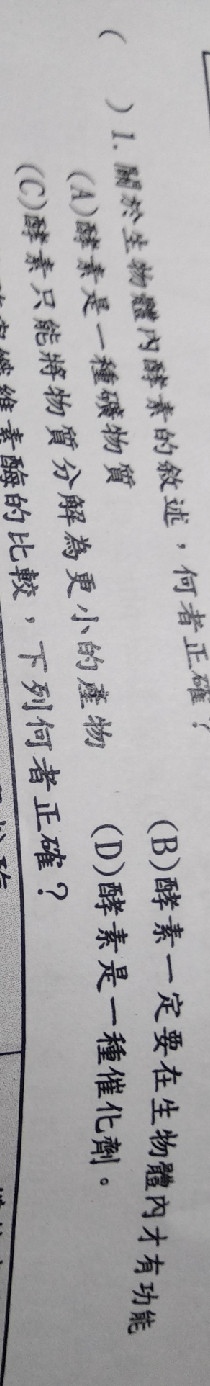 (　)1.關於生物體內酵素的敘述，何者正確？
(A)酵素是一種礦物質　(B)酵素一定要在生物體內才有功能
(C)酵素只能將物質分解為更小的產物　(D)酵素是一種催化劑。
纖維素酶的比較，下列何者正確？